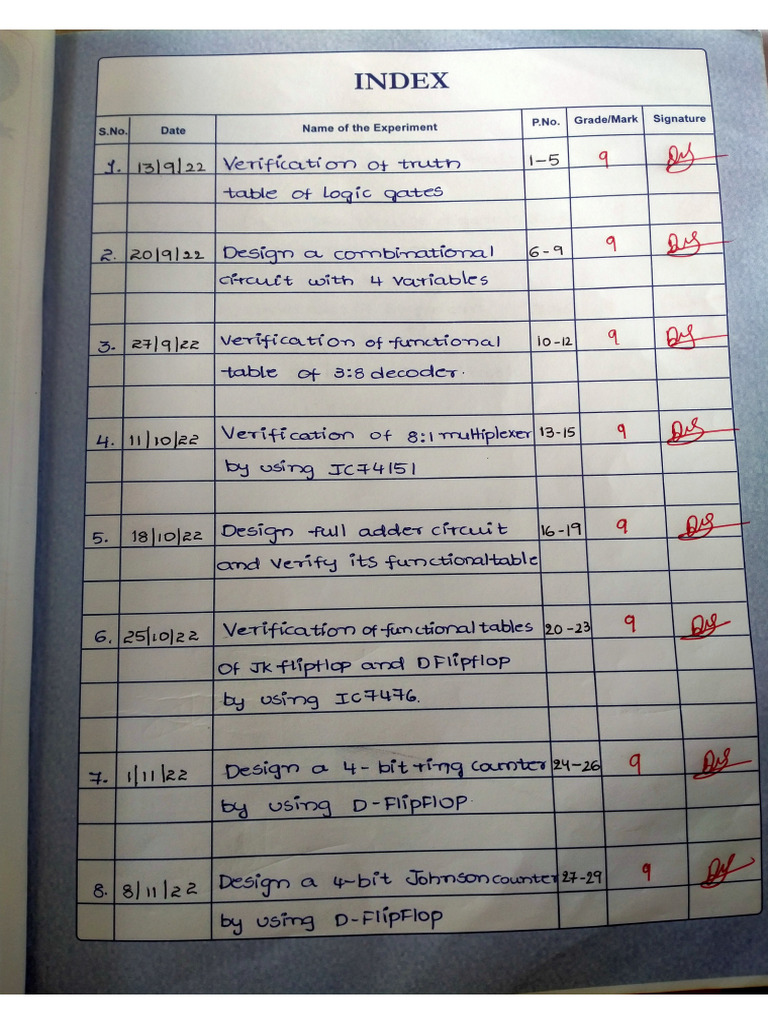 INDEX
S.No. Date Name of the Experiment P.No. Grade/Mark Signature
1. 13/9/22 Verification of truth 1-5 9
table of logic gates
2. 20/9/22 Design a combinational 6-9 9
circuit with 4 variables
3. 27/9/22 Verification of functional 10-12 9
table of 3:8 decoder.
4. 11/10/22 Verification of 8:1 multiplexer 13-15 9
by using IC74151
5. 18/10/22 Design full adder circuit 16-19 9
and verify its functional table
6. 25/10/22 Verification of functional tables 20-23 9
of JK flipflop and D Flipflop
by using IC7476.
7. 1/11/22 Design a 4-bit ring counter 24-26 9
by using D-FlipFlop.
8. 8/11/22 Design a 4-bit Johnson counter 27-29 9
by using D-FlipFlop